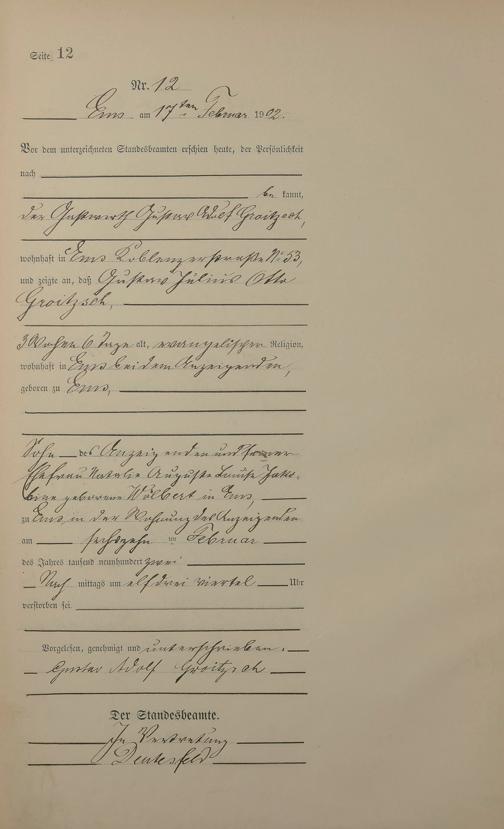 Seite 12
Nr. 12
Ems am 17ten Februar 1902.
Vor dem unterzeichneten Standesbeamten erschien heute, der Persönlichkeit
nach
be kannt,
der Gastwirth Gustav Adolf Groitzsch,
wohnhaft in Ems Koblenzerstraße No 53,
und zeigte an, daß Gustav Julius Otto
Groitzsch,
3 Wochen 6 Tage alt, evangelischer Religion,
wohnhaft in Ems bei dem Anzeigenden,
geboren zu Ems,
Sohn des Anzeigenden und seiner
Ehefrau Natalie Auguste Louise Jako-
bine geborene Wölbert in Ems,
zu Ems in der Wohnung des Anzeigenden
am sechszehn ten Februar
des Jahres tausend neunhundert zwei
Nach mittags um elf drei viertel Uhr
verstorben sei.
Vorgelesen, genehmigt und unterschrieben.
Gustav Adolf Groitzsch
Der Standesbeamte.
In Vertretung